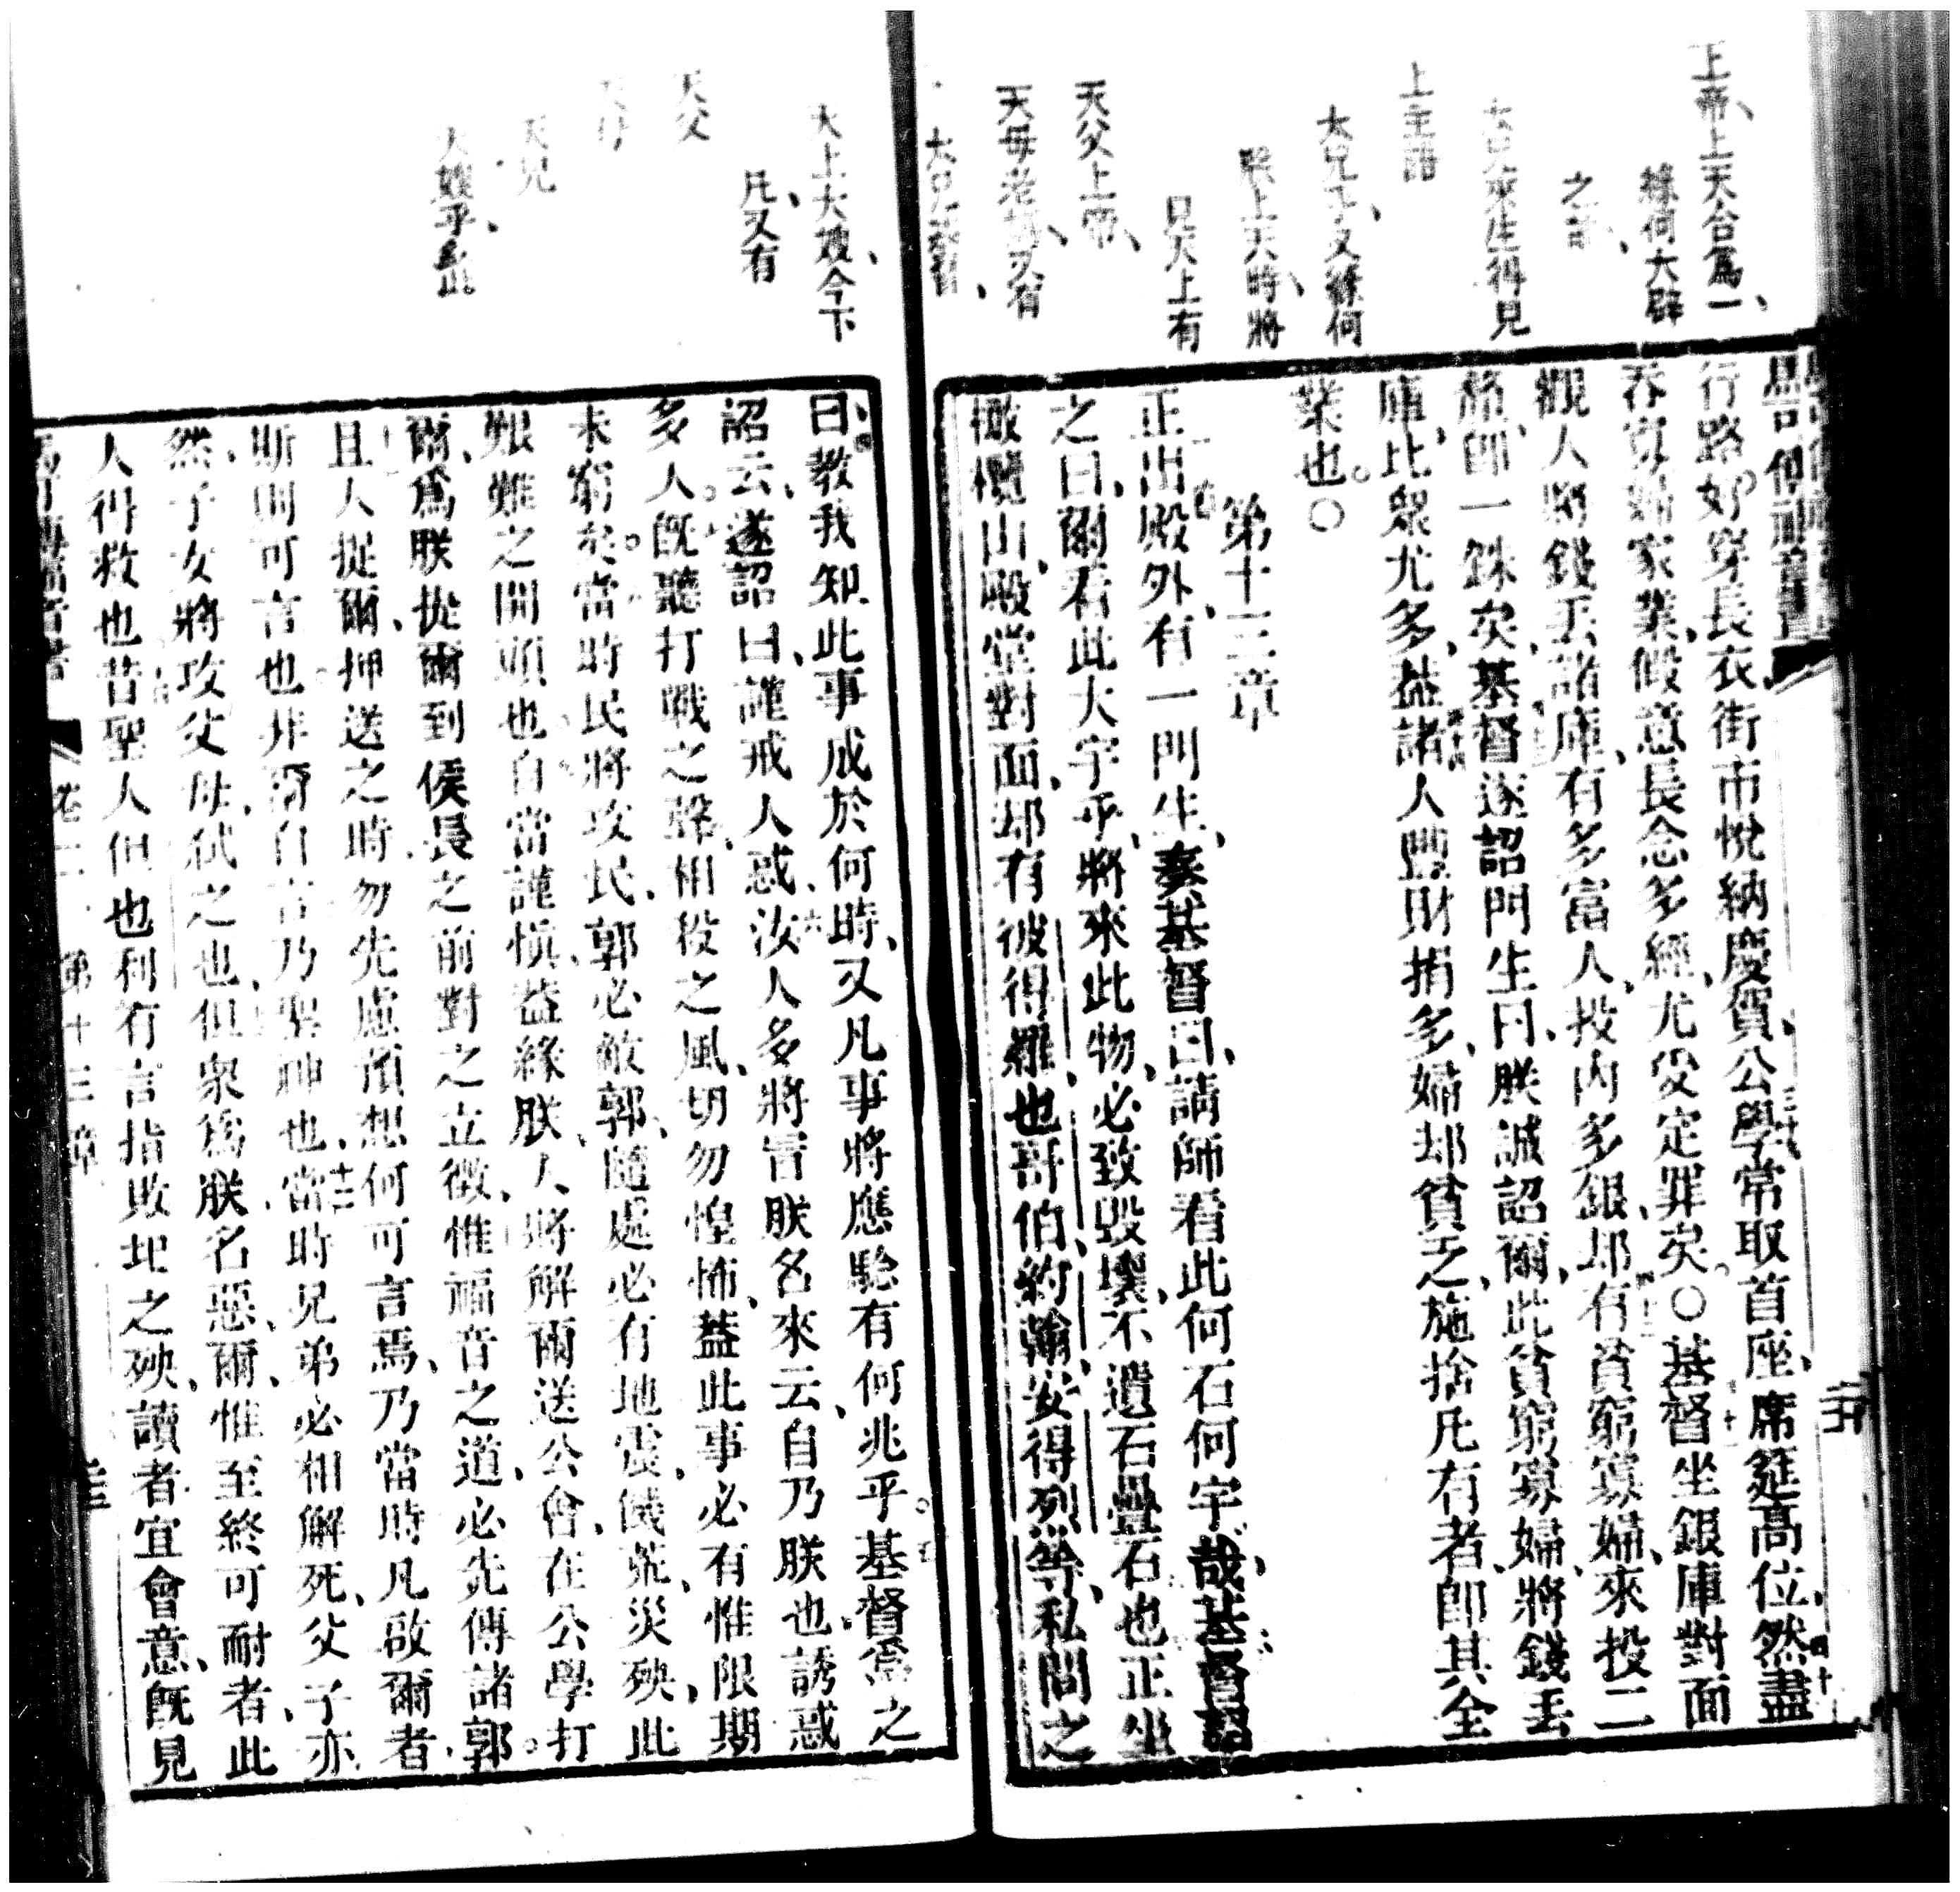 上帝上天合爲一
緣何大辟
之
生得見
上主詔
大兄子又緣何
上天時將
兄天上有
天父上帝
天母老媽又有
大兄
大上大嫂今下
凡又有
天父
天兄
天嫂乎
馬可傳福音書
行路好穿長衣街市悅納慶賀公學常取首座席筵高位然盡
吞寡婦家業假意長念多經尤受定罪矣〇基督坐銀庫對面
觀人將錢丟諸庫有多富人投內多銀却有貧窮寡婦來投二
厘即一銖矣基督遂詔門生曰朕誠詔爾此貧窮寡婦將錢丟
庫比衆尤多蓋諸人豐財捐多婦却貧乏施捨凡有者即其全
業也〇
第十三章
正出殿外有一門生奏基督曰請師看此何石何宇哉基督詔
之曰爾看此大宇乎將來此物必致毀壞不遺石疊石也正坐
橄欖山殿堂對面却有彼得羅也哥伯約翰安得列等私問之
曰教我知此事成於何時又凡事將應驗有何兆乎基督爲之
詔云遂詔曰謹戒人惑汝人多將冒朕名來云自乃朕也誘惑
多人旣聽打戰之聲相役之風切勿惶怖蓋此事必有惟限期
未窮矣當時民將攻民郭必敵郭隨處必有地震饑荒災殃此
艱難之開頭也自當謹愼蓋緣朕人將解爾送公會在公學打
爾爲朕提爾到侯長之前對之立徵惟福音之道必先傳諸郭
且人捉爾押送之時勿先慮預想何可言焉乃當時凡啟爾者
斯則可言也非爾自言乃聖神也當時兄弟必相解死父子亦
然子女將攻父母弒之也但衆爲朕名惡爾惟至終可耐者此
人得救也昔聖人但也利有言指敗地之殃讀者宜會意旣見
卷二 第十三章